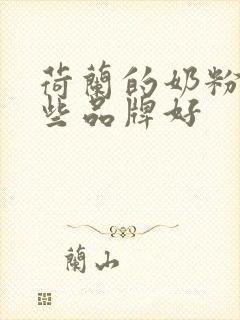 荷蘭的奶粉
些品牌好
蘭山